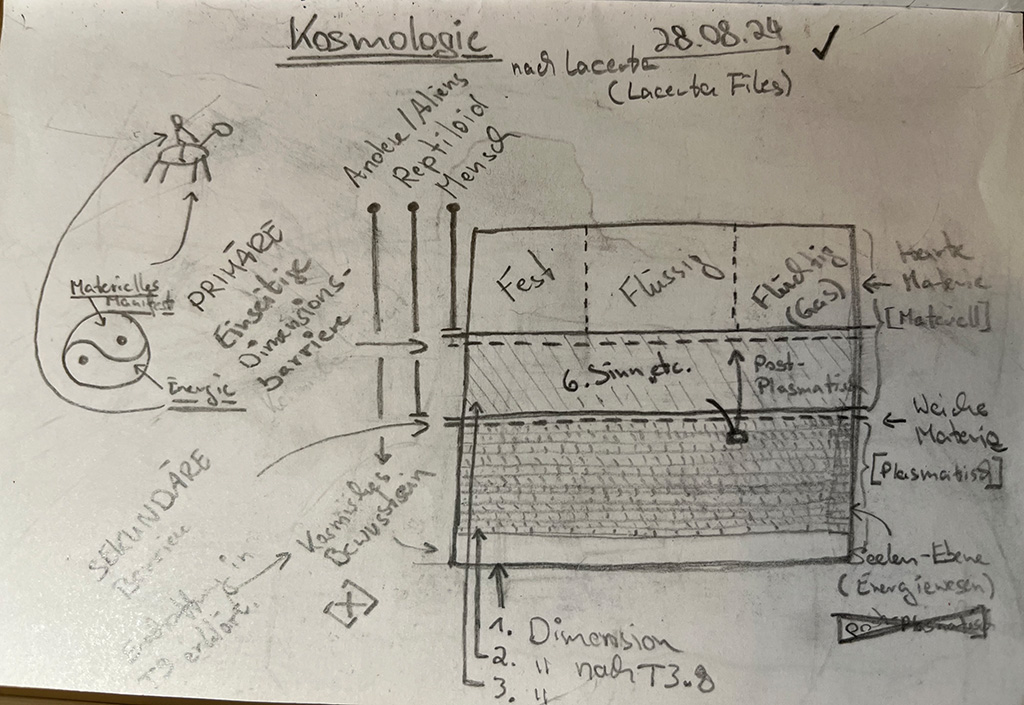 Kosmologie
28.08.24
nach Lacerta
(Lacerta Files)
Andere/Aliens
Reptiloid
Mensch
Materielles
Manifest
Energie
PRIMÄRE
Einseitige
Dimensions-
barriere
Fest
Flüssig
Flüchtig
(Gas)
Harte
Materie
[Materiell]
6. Sinn, etc.
Post-
Plasmatisch
Weiche
Materie
[Plasmatisch]
SEKUNDÄRE
Barriere
in
T3 erklärt.
Kosmisches
Bewusstsein
[X]
Seelen-Ebene
(Energiewesen)
1. Dimension
2. " nach T3.8
3. "